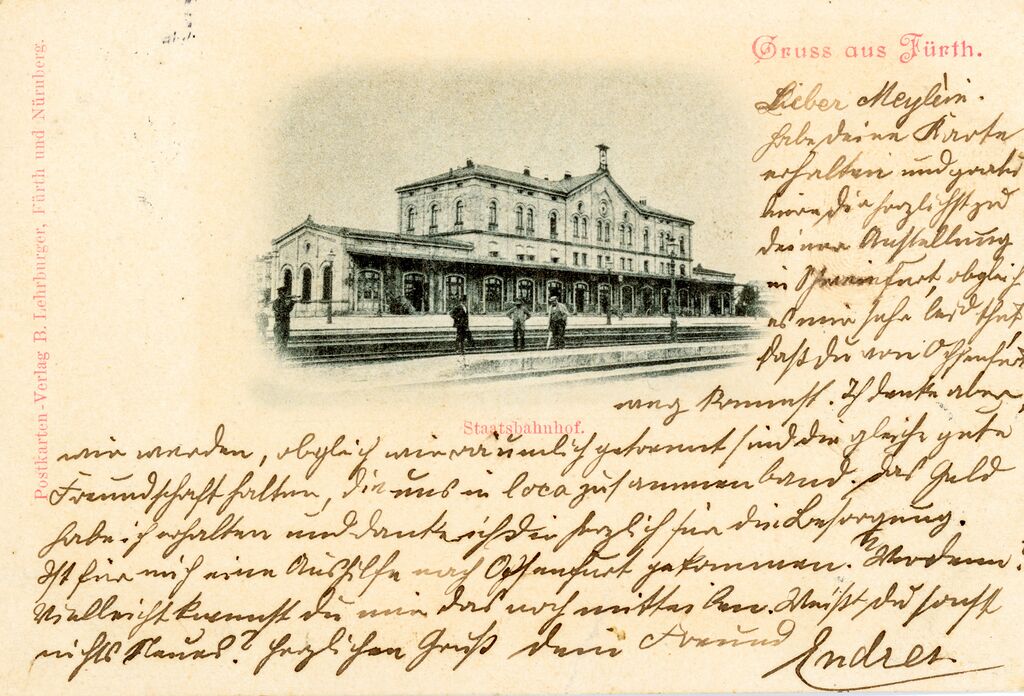 Gruss aus Fürth.
Postkarten-Verlag B. Lehrburger, Fürth und Nürnberg.
Staatsbahnhof.
Lieber Meylein.
habe deine Karte
erhalten und gratu
liere dir herzlichst zu
deiner Anstellung
in Schweinfurt, obgleich
es mir sehr leid thut,
daß du von Ochsenfurt
weg kommst. Ich denke aber,
wir werden, obgleich wir räumlich getrennt sind die gleiche gute
Freundschaft halten, die uns in loco zusammenband. Das Geld
habe ich erhalten und danke ich dir herzlich für die Besorgung.
Ist für mich eine Aushilfe nach Ochsenfurt gekommen? Wer denn?
Vielleicht kannst du mir das noch mitteilen. Weißt du sonst
nichts Neues? Herzlichen Gruß dein Freund
Endres